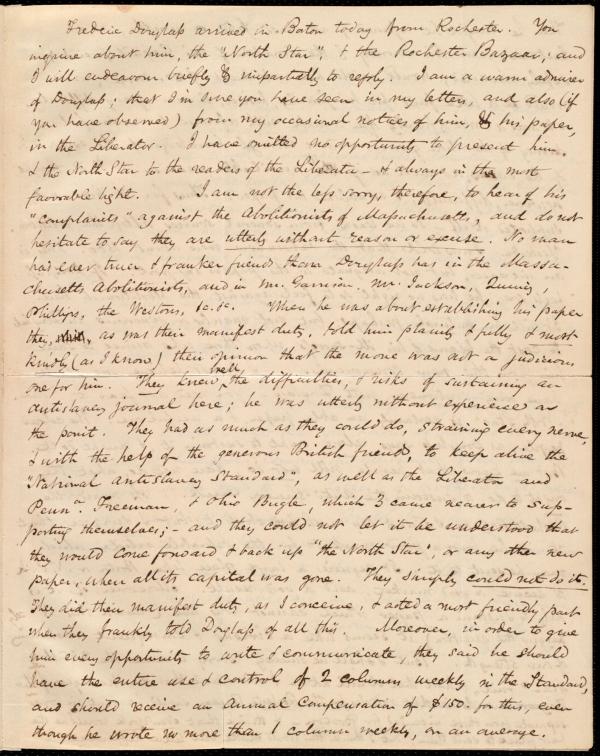 Frederic Douglass arrived in Boston today from Rochester. You
inquire about him, the "North Star", & the Rochester Bazaar; and
I will endeavour briefly & impartially to reply. I am a warm admirer
of Douglass; that I'm sure you have seen in my letters, and also (if
you have observed) from my occasional notices of him, & his paper,
in the Liberator. I have omitted no opportunity to present him,
& the North Star to the readers of the Liberator - & always in the most
favorable light. I am not the less sorry, therefore, to hear of his
"complaints" against the Abolitionists of Massachusetts, and do not
hesitate to say they are utterly without reason or excuse. No man
has ever truer & franker friends than Douglass has in the Massa-
chusetts Abolitionists, and in Mr. Garrison, Mr. Jackson, Quincy,
Phillips, the Westons, &c. &c. When he was about establishing his paper
they, as was their manifest duty, told him plainly & fully & most
kindly (as I know) their opinion that the move was not a judicious
one for him. They knew well the difficulties, & risks of sustaining an
antislavery journal here; he was utterly without experience on
the point. They had as much as they could do, straining every nerve,
& with the help of the generous British friends, to keep alive the
"National Antislavery Standard", as well as the Liberator and
Penna. Freeman, & Ohio Bugle, which 3 came nearer to sup-
porting themselves; - and they could not let it be understood that
they would come forward & back up "the North Star", or any other new
paper, when all its capital was gone. They simply could not do it.
They did their manifest duty, as I conceive, & acted a most friendly part
when they frankly told Douglass of all this. Moreover, in order to give
him every opportunity to write & communicate, they said he should
have the entire use & control of 2 columns weekly in the Standard,
and should receive an annual compensation of $150. for this, even
though he wrote no more than 1 column weekly, on an average.